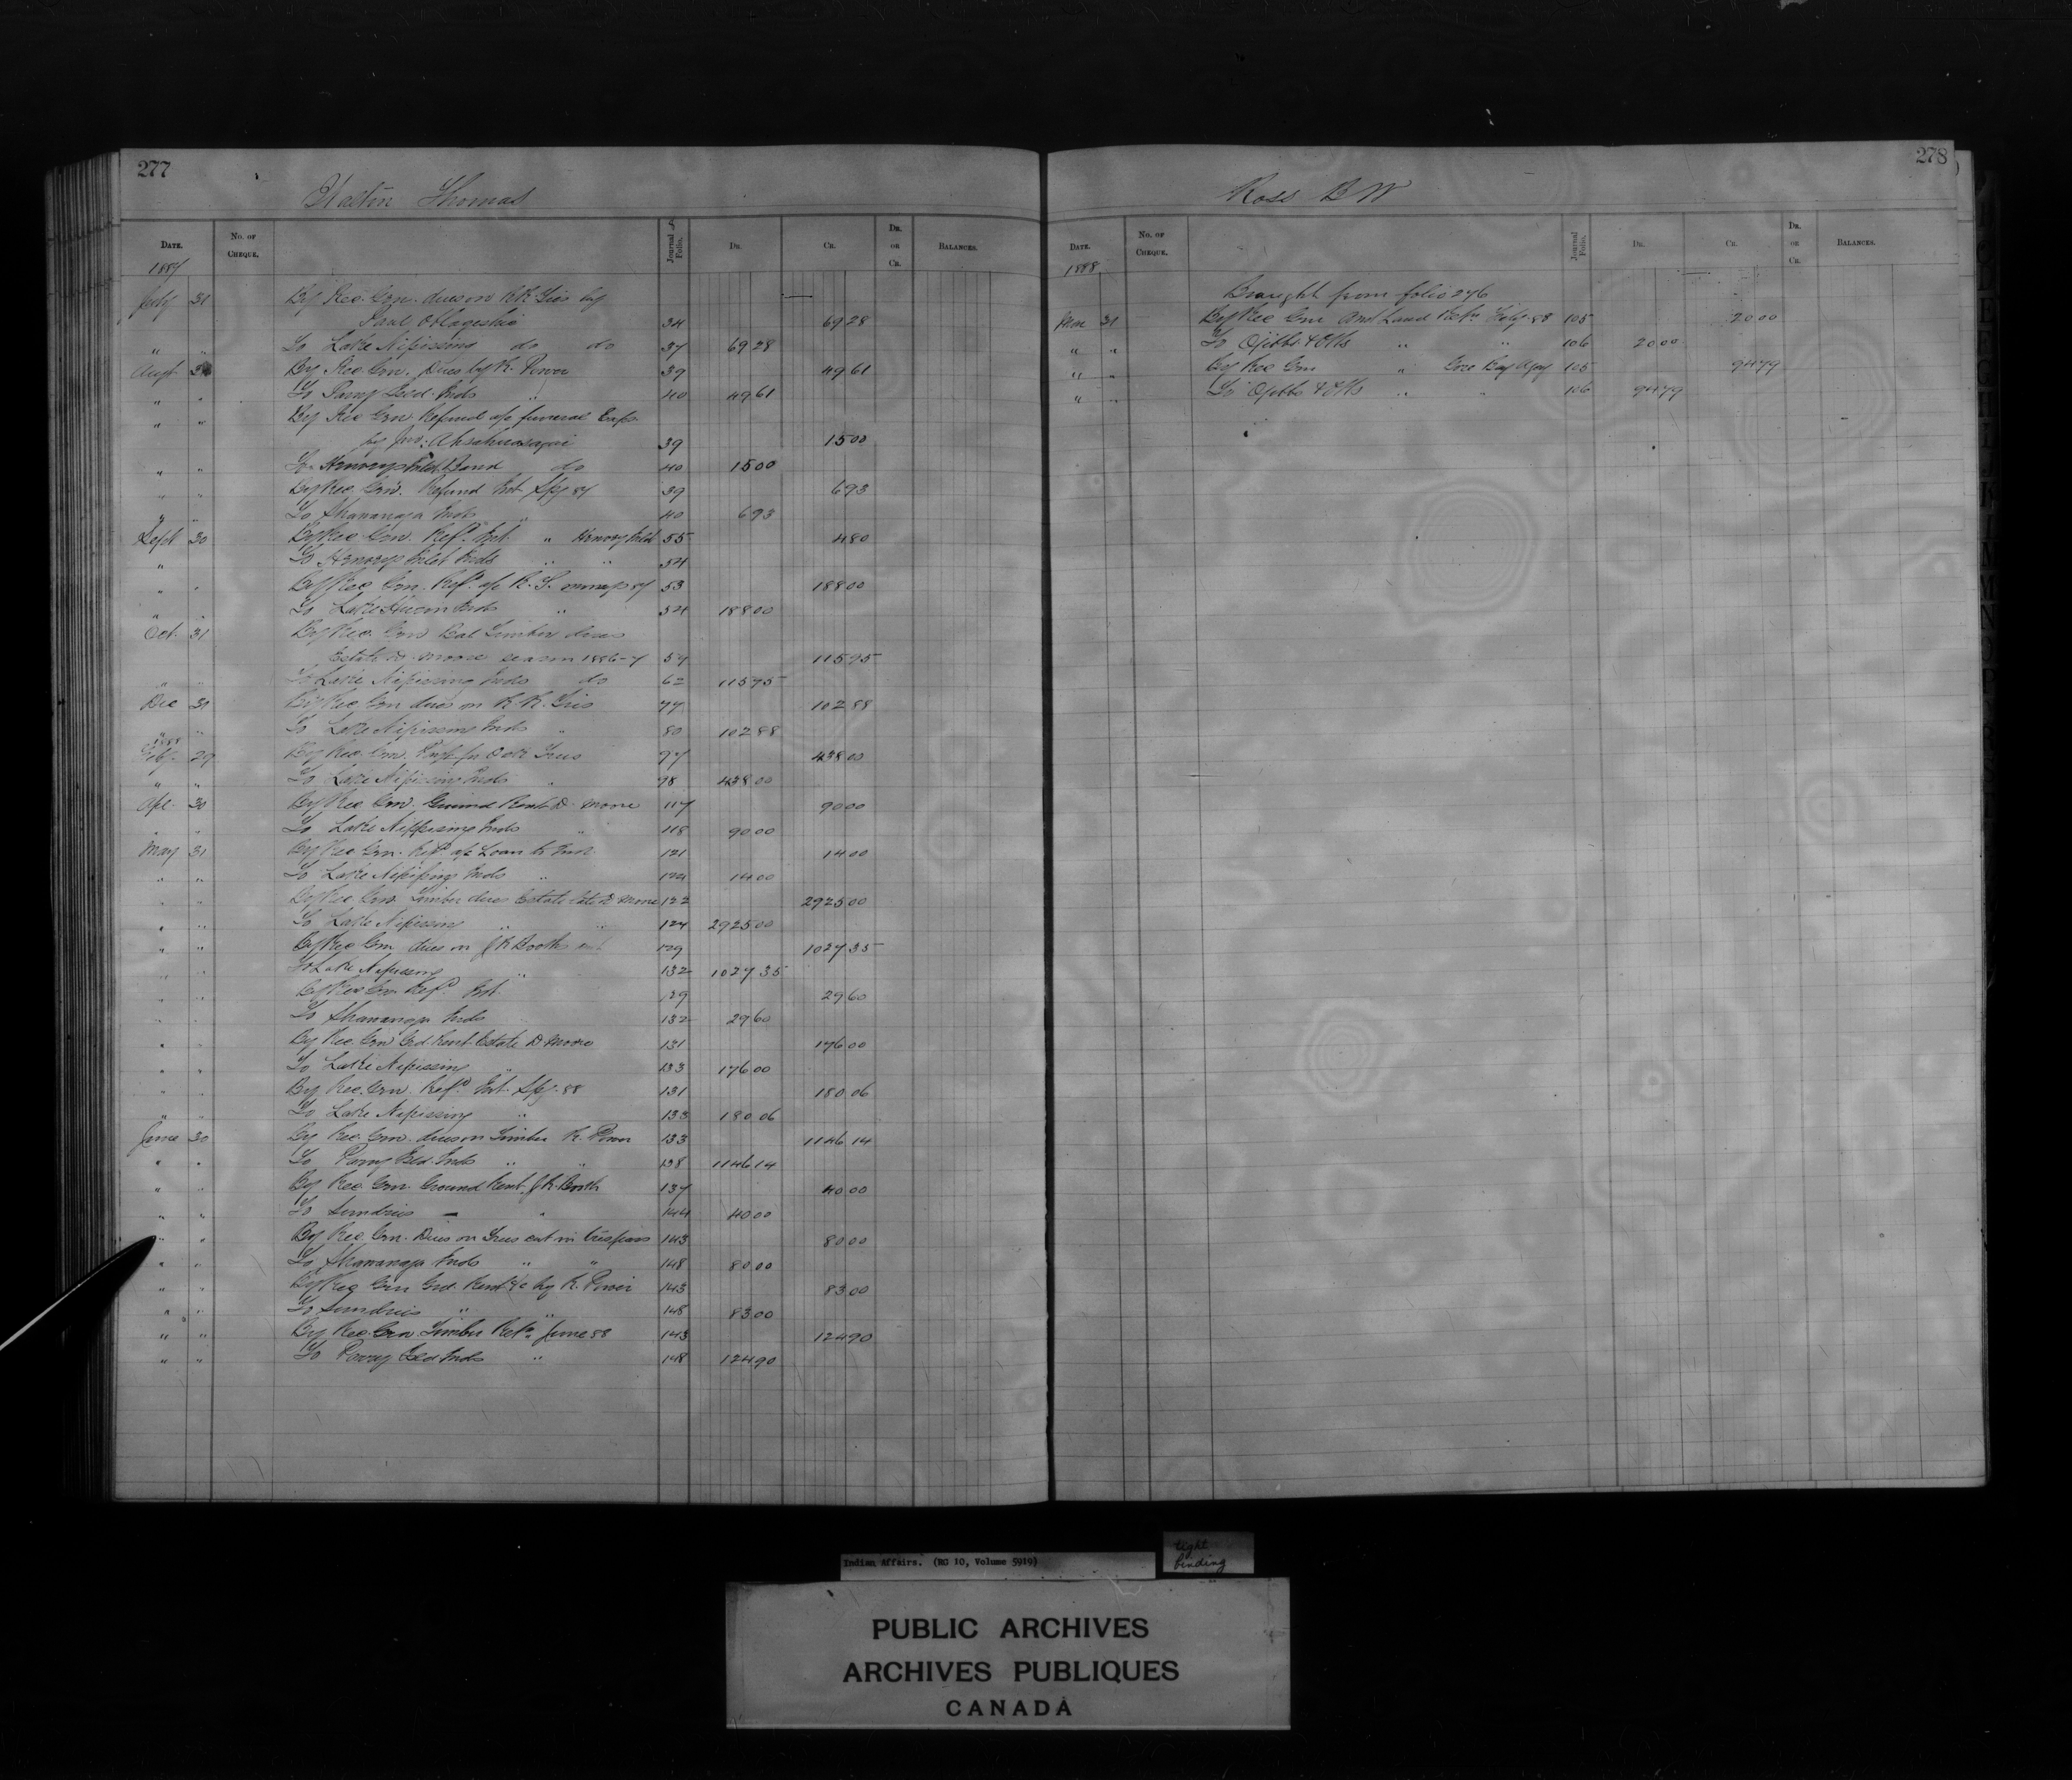 277
Walton Thomas
DATE. No. OF CHEQUE. Journal Folio. DR. CR. DR. on CR. BALANCES.
1887
July 31 By Rec. Gen. dues on RR Ties by
Paul 34 69 28
" " To Lake Nipissing do do 37 69 28
Augt 31 By Rec Gen. Dues by R. Power 39 49 61
" " To Parry Isld. Inds " 40 49 61
" " By Rec Gen Refund a/c funeral Exps
by Jno: 39 15 00
" " To Henveys Inlet Band do 40 15 00
" " By Rec. Gen. Refund Int. Spg 87 39 6 93
" " To Shawanaga Inds " 40 6 93
Sept 30 By Rec Gen. Refd. Int. " Henvey Inlet 55 4 80
" To Henveys Inlet Inds " " 54
" " By Rec Gen. Refd a/c R. S. moneys 87 53 188 00
" " To Lake Huron Inds " 54 188 00
Oct. 31 By Rec. Gen Bal Timber dues
Estate D. Moore season 1886-7 57 115 75
" " To Lake Nipissing Inds do 62 115 75
Dec 31 By Rec Gen dues on R.R. Ties 77 102 88
" " To Lake Nipissing Inds " 80 102 88
1888
Feby. 29 By Rec. Gen. Oak Trees 97 438 00
" " To Lake Nipissing Inds " 98 438 00
Apl. 30 By Rec Gen. Ground Rent D. Moore 117 90 00
" " To Lake Nippissing Inds " 118 90 00
May 31 By Rec Gen. Refd a/c Loan to Ind. 121 14 00
" " To Lake Nipissing Inds " 124 14 00
" " By Rec Gen Timber dues Estate late D Moore 122 2925 00
" " To Lake Nipissin " " 124 2925 00
" " By Rec Gen dues on J R Booths cut 129 1027 35
" " To Lake Nipissing " 132 1027 35
" " By Rec Gen Refd. Int. 129 29 60
" " To Shawanaga Inds 132 29 60
" " By Rec. Gen Grd. Rent Estate D Moore 131 176 00
" " To Lake Nipissing " 133 176 00
" " By Rec. Gen. Refd Int. Spg. 88 131 180 06
" " To Lake Nipissing " 133 180 06
June 30 By Rec. Gen. dues on Timber R. Power 133 1146 14
" " To Parry Isld. Inds " " 138 1146 14
" " By Rec Gen. Ground Rent J R. Booth 137 40 00
" " To Sundries — " 144 40 00
" " By Rec. Gen. Dues on Trees cut in trespass 143 80 00
" " To Shawanaga Inds " " 148 80 00
" " By Rec Gen Grd. Rent &c by R. Power 143 83 00
" " To Sundries " " 148 83 00
" " By Rec Gen Timber Retn. June 88 143 124 90
" " To Parry Isld Inds " 148 124 90
278
Ross B W
DATE. No. OF CHEQUE. Journal Folio. DR. CR. DR. on CR. BALANCES.
1888
Brought from folio 276
Mar 31 By Rec Gen Land Retn Feby 88 105 20 00
" " To Ojibbs & Otts " " 106 20 00
" " By Rec Gen " Gore Bay Agcy 105 94 79
" " To Ojibbs & Otts " " 106 94 79
Indian Affairs. (RG 10, Volume 5919)
tight
binding
PUBLIC ARCHIVES
ARCHIVES PUBLIQUES
CANADA